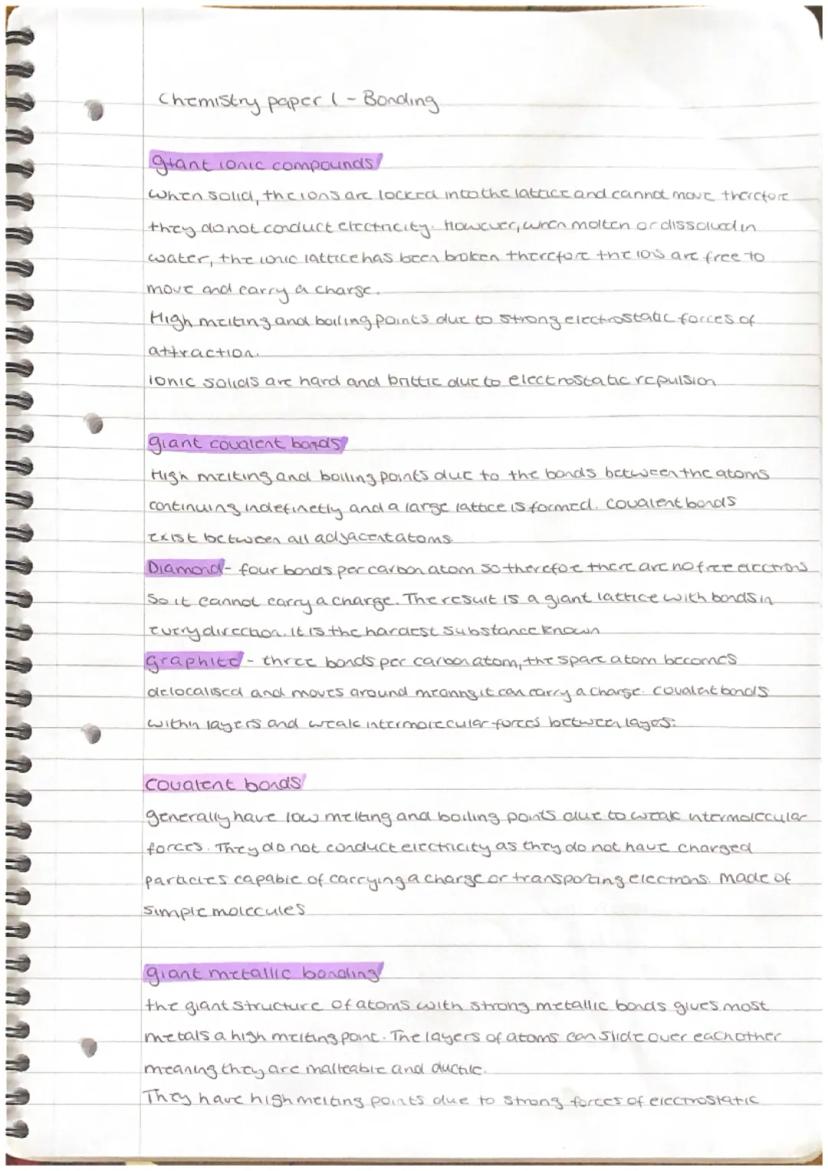 Chemistry paper 1 - Bonding
giant ionic compounds
when solid, the ions are locked into the lattice and cannot move therefore
they do not conduct electricity. However, when molten or dissolved in
water, the ionic lattice has been broken therefore the ions are free to
move and carry a charge.
High melting and boiling points due to strong electrostatic forces of
attraction.
ionic solids are hard and brittle due to electrostatic repulsion
giant covalent bonds
High melting and boiling points due to the bonds between the atoms
continuing indefinetly and a large lattice is formed. Covalent bonds
exist between all adjacent atoms
Diamond - four bonds per carbon atom so therefore there are no free electrons
So it cannot carry a charge. The result is a giant lattice with bonds in
every direction. It is the hardest substance known
graphite - three bonds per carbon atom, the spare atom becomes
delocalised and moves around meaning it can carry a charge. Covalent bonds
within layers and weak intermolecular forces between layers.
Covalent bonds
generally have low melting and boiling points due to weak intermolecular
forces. They do not conduct electricity as they do not have charged
particles capable of carrying a charge or transporting electrons. Made of
simple molecules
giant metallic bonding
the giant structure of atoms with strong metallic bonds gives most
metals a high melting point. The layers of atoms can slide over each other
meaning they are malleable and ductile.
They have high melting points due to strong forces of electrostatic